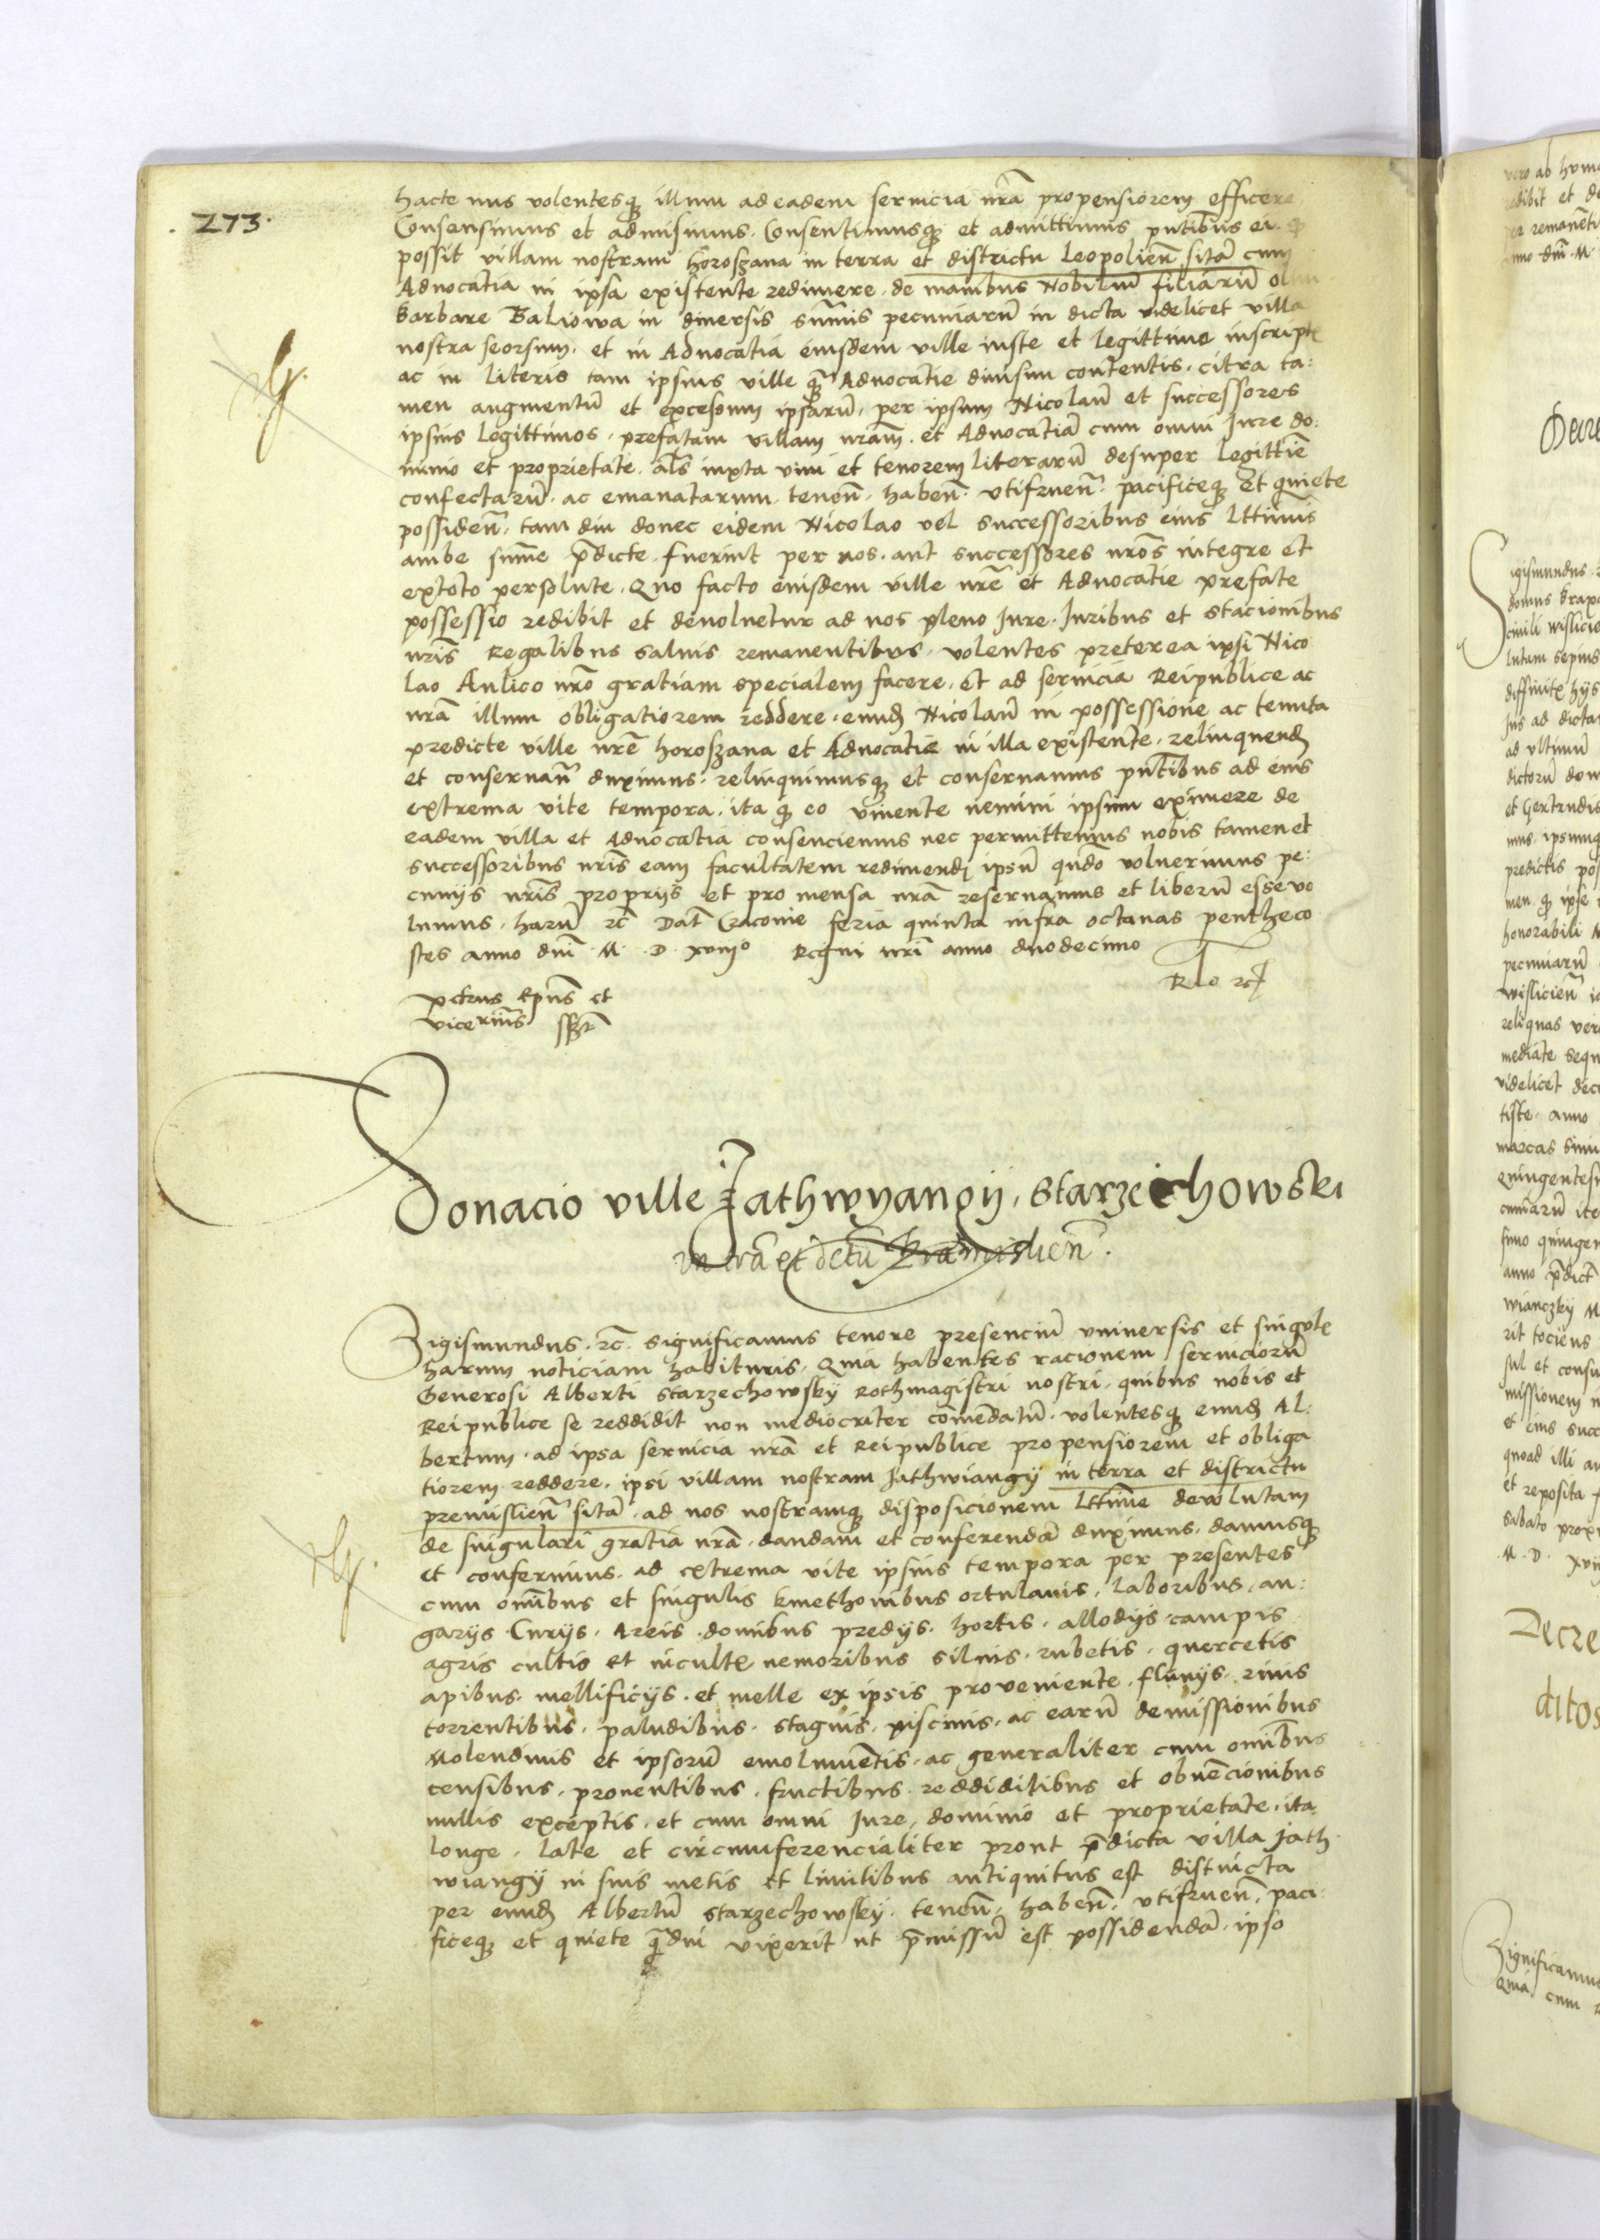 . 273 .
hactenus volentesq illum ad eadem seruicia nrã propensiorem efficere
Consensimus et admisimus. Consentimusq et admittimus pntibus ei q
possit villam nostram horoszana in terra et districtu Leopolieñ sitã cum
Aduocatia in ipsa existente redimere de manibus Nobiliũ filiarũ olim
Barbare Baliowa in diuersis sũmis pecuniarũ in dicta videlicet villa
nostra seorsum. et in Aduocatia eiusdem ville iuste et legittime inscript
ac in literis tam ipsius ville q̃ Aduocatie diuisim contentis. citra ta:
men augmentũ et excessum ipsarũ. per ipsum Nicolaũ et successores
ipsius Legittimos. prefatam villam nrãm. et Aduocatiã cum omni Jure do:
minio et proprietate. als iuxta vim et tenorem literarũ desuper Legittie
confectarũ. ac emanatarum. teneñ. habeñ. vtifrueñ. pacificeq et quiete
possideñ. tam diu donec eidem Nicolao vel successoribus eius Lttimis
ambe sum̃e p̃dicte. fuerint per nos. aut successores nrõs integre et
extoto persolute. Quo facto eiusdem ville nrẽ et Aduocatie prefate
possessio redibit et deuoluetur ad nos pleno Jure. Juribus et stacionibus
nrĩs Regalibus saluis remanentibus. volentes preterea ipsi Nico
lao Aulico nrõ gratiam specialem facere. et ad seruicia Reipublice ac
nrã illum obligatiorem reddere. eund Nicolaũ in possessione ac tenuta
predicte ville nrẽ horoszana et Aduocatie in illa existente. relinquend
et conseruañ duximus. relinquimusq et conseruamus pntibus ad eius
extrema vite tempora. ita q eo viuente nemini ipsum eximere de
eadem villa et Aduocatia consenciemus nec permittemus nobis tamen et
successoribus nrĩs eam facultatem redimendi ipsũ qndo voluerimus pe:
cunijs nrĩs proprijs et pro mensa nrã reseruamus et liberũ esse vo
lumus. harũ rc̃ Dat Cracouie feria quinta infra octauas pentheco
stes anno dnĩ M. D. xviijo Regni nrĩ anno duodecimo
Rlo rc̃
petrus Epus et
vicecancellarius sspt
Donacio ville Jathwyangij, starzechowski
in terrã et dctũ Praemislieñ.
Zigismundus. rc̃. significamus tenore presenciũ vniuersis et singul
harum noticiam habituris. Quia habentes racionem seruiciorũ
Generosi Alberti starzechowsky Rothmagistri nostri. quibus nobis et
Reipublice se reddidit non mediocriter com̃endatũ. volentesq eund Al:
bertum. ad ipsa seruicia nrã et Reipublice propensiorem et obliga
tiorem reddere. ipsi villam nostram Jathwiangij in terra et districtu
premislieñ sitã. ad nos nostramq disposicionem Lttime deuolutam
de singulari gratia nrã. dandam et conferendã duximus. damusq
et conferimus. ad extrema vite ipsius tempora per presentes
cum omĩbus et singulis kmethonibus ortulanis. laboribus. an:
garijs. Curijs. Areis. domibus predijs. hortis. allodijs. campis
agris cultis et incult nemoribus siluis. rubetis. quercetis
apibus. mellificijs. et melle ex ipsis proueniente. fluuijs. riuis
torrentibus. paludibus. stagnis. piscinis. ac earũ demissionibus
Molendinis et ipsorũ emolimẽtis. ac generaliter cum omĩbus
censibus. prouentibus. fructibus. reddiditibus et obuẽcionibus
nullis exceptis. et cum omni Jure. dominio et proprietate. ita
longe. late et circumferencialiter prout p̃dicta villa Jath
wiangij in suis metis et limitibus antiquitus est distincta
per eund Albertũ starzechowsky. teneñ. habeñ. vtifrueñ. paci:
ficeq et quiete q̃diu vixerit ut p̃missũ est possidendã. ipso